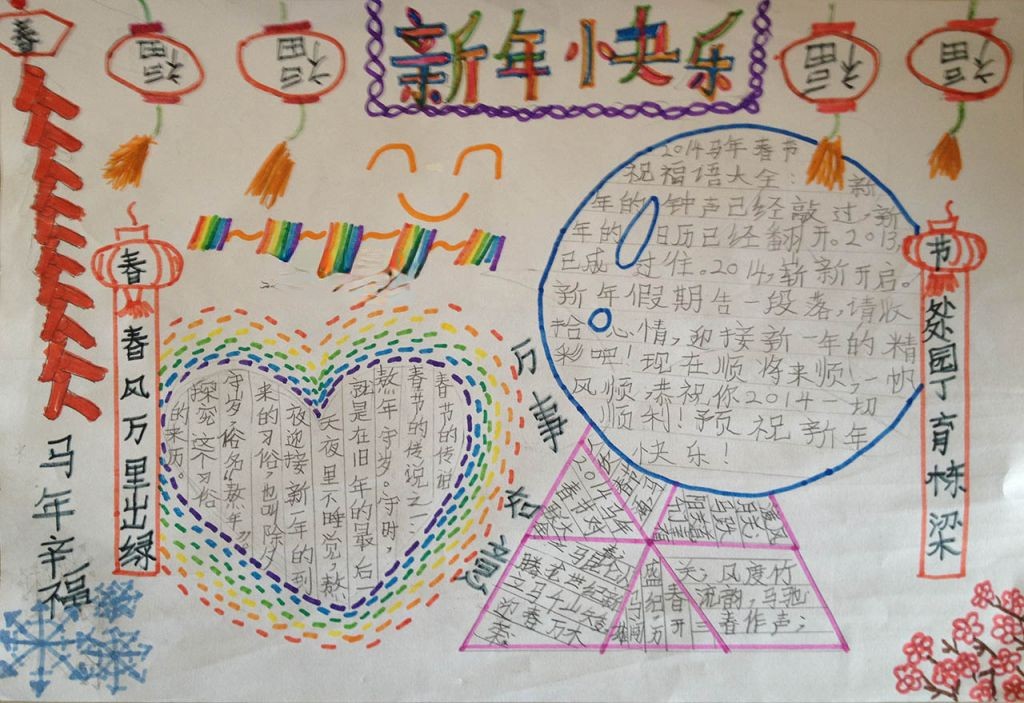 新年快乐
春
福
福
福
福
春
春风万里出绿
马年辛福
春节的传说
春节的传说之一:
熬年守岁。守时,
就是在旧年的最后一
天夜里不睡觉,熬
夜迎接新一年的到
来的习俗,也叫除夕
守岁,俗名熬年。
探究这个习俗
的来历。
万事意
2014马年春节
祝福语大全: 新
年的钟声已经敲过,新
年的日历已经翻开。2013,
已成过往。2014,崭新开启。
新年假期告一段落,请收
拾心情,迎接新一年的精
彩吧!现在顺,将来顺,一帆
风顺。恭祝你2014一切
顺利!预祝新年
快乐!
2014马年
春节
关,风度竹
流韵,马驰
春作声;
节
处园丁育栋梁